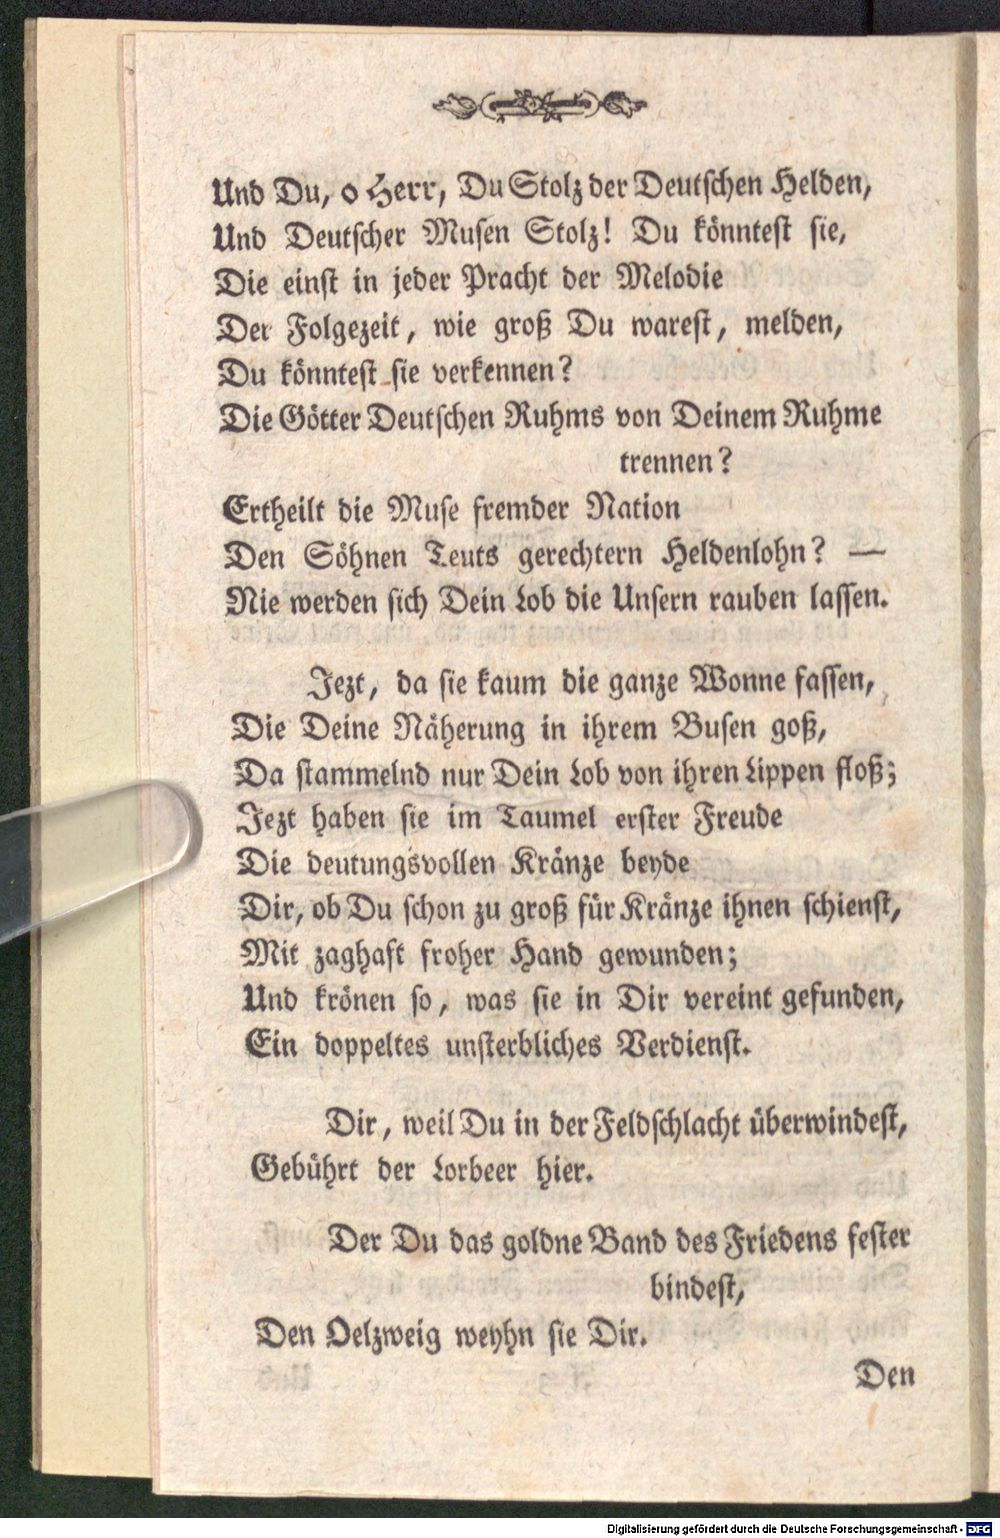 Und Du, o Herr, Du Stolz der Deutschen Helden,
Und Deutscher Musen Stolz! Du könntest sie,
Die einst in jeder Pracht der Melodie
Der Folgezeit, wie groß Du warest, melden,
Du könntest sie verkennen?
Die Götter Deutschen Ruhms von Deinem Ruhme
trennen?
Ertheilt die Muse fremder Nation
Den Söhnen Teuts gerechtern Heldenlohn? —
Nie werden sich Dein Lob die Unsern rauben lassen.
Jezt, da sie kaum die ganze Wonne fassen,
Die Deine Näherung in ihrem Busen goß,
Da stammelnd nur Dein Lob von ihren Lippen floß;
Jezt haben sie im Taumel erster Freude
Die deutungsvollen Kränze beyde
Dir, ob Du schon zu groß für Kränze ihnen schienst,
Mit zaghaft froher Hand gewunden;
Und krönen so, was sie in Dir vereint gefunden,
Ein doppeltes unsterbliches Verdienst.
Dir, weil Du in der Feldschlacht überwindest,
Gebührt der Lorbeer hier.
Der Du das goldne Band des Friedens fester
bindest,
Den Oelzweig weyhn sie Dir.
Den
Digitalisierung gefördert durch die Deutsche Forschungsgemeinschaft - DFG